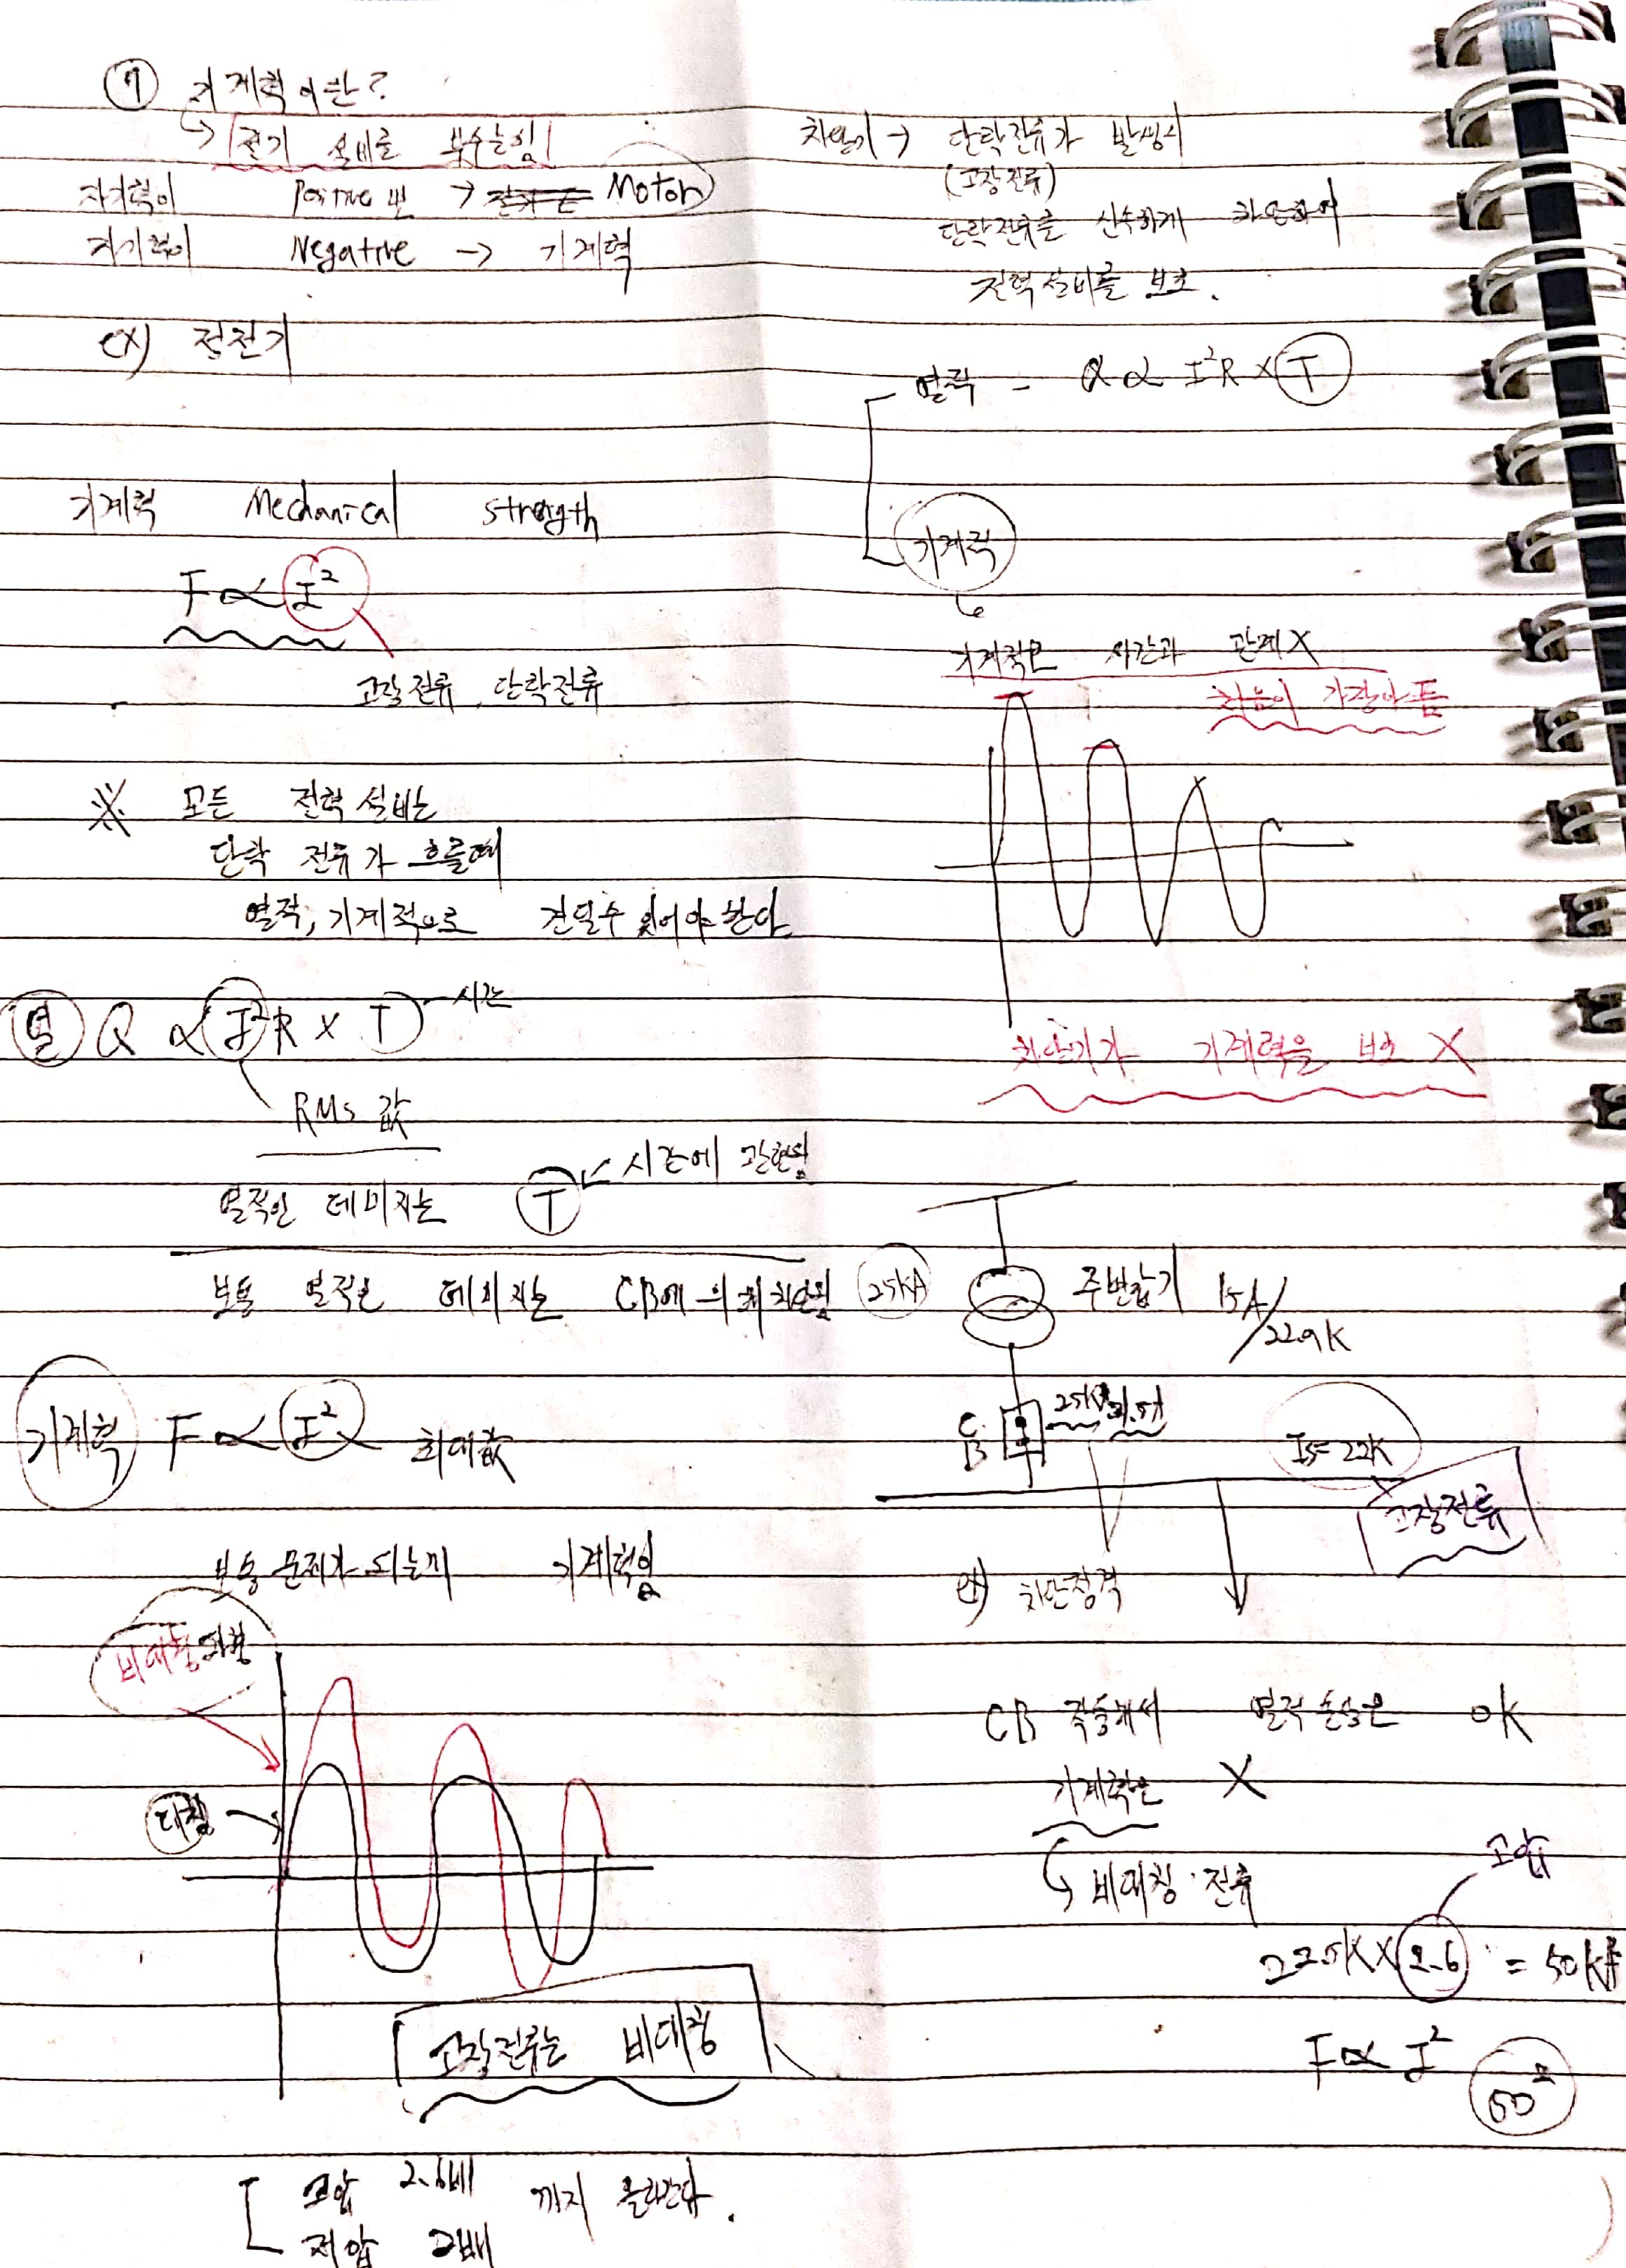 ⑦ 기계력이란?
→ 전기 설비를 부수는 힘
자기력이 Positive 면 → Motor
자기력이 Negative → 기계력
ex) 정전기
기계력 Mechanical strength
F ∝ I²
고장전류, 단락전류
※ 모든 전력설비는
단락 전류가 흐를때
열적, 기계적으로 견딜수 있어야 한다.
열 Q ∝ I²R × T 시간
RMS 값
열적인 데미지는 T ← 시간에 관련됨
보통 열적인 데미지는 CB에 의해 차단됨
기계력 F ∝ I² 최대값
보통 문제가 되는게 기계력임
비대칭
대칭 →
고장전류는 비대칭
고압 2.6배 까지 올라간다.
저압 2배
차단기 → 단락전류가 발생시
(고장전류)
단락전류를 신속하게 차단하여
전력설비를 보호.
열적 - Q ∝ I²R × T
기계력
기계력은 시간과 관계 X
처음이 가장아픔
차단기가 기계력을 보호 X
25kA 주변압기 154/22.9K
CB 25kA
Is=22K
고장전류
차단정격
CB 작동해서 열적손상은 OK
기계력은 X
↳ 비대칭 전류
고압
22.5K × 2.6 = 50kA
F ∝ I² 50²